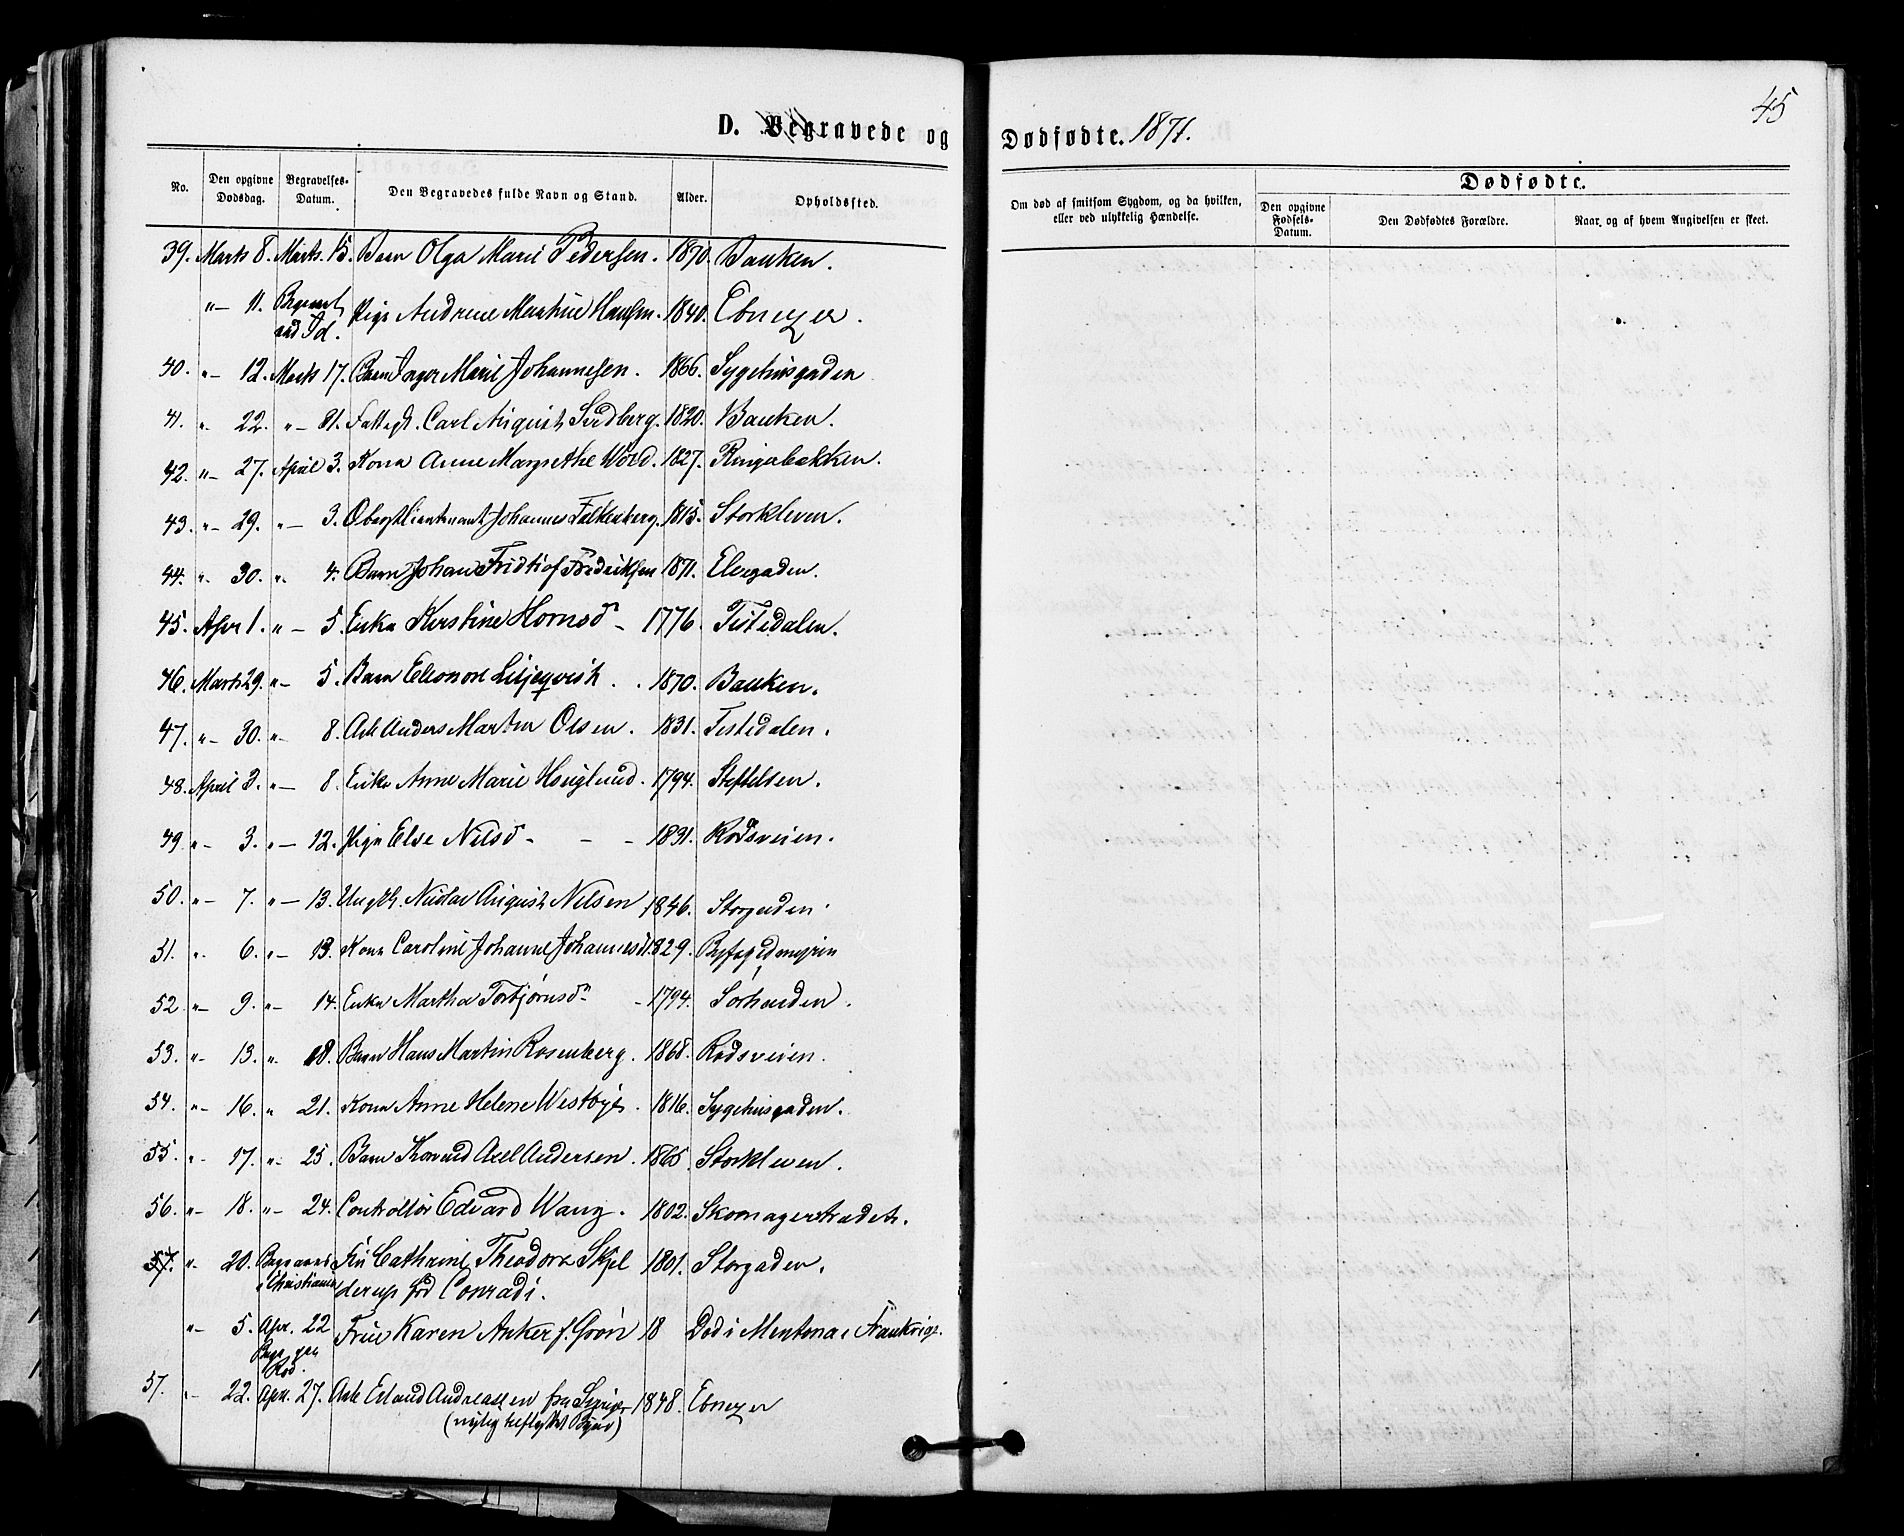 45
D. Begravede og Dødfødte. 1871.
No. Den opgivne Dødsdag. Begravelses-Datum. Den Begravedes fulde Navn og Stand. Alder. Opholdssted.
Om død af smitsom Sygdom, og da hvilken, eller ved ulykkelig Hændelse.
Dødfødte.
Den opgivne Fødsels-Datum. Den Dødfødtes Forældre. Naar, og af hvem Angivelsen er skeet.
39. Marts 8. Marts. 15. Barn Olga Marie Pedersen. 1870. Banken.
"– 11. Begravet
ved Id. Pige Andrine Martine Hansen. 1840. Ebnezer.
40. "– 12. Marts 17. Barn Inger Marie Johannesen. 1866. Sygehusgaden
41. " 22. "– 31. Fattigl. Carl August Sundberg. 1820. Banken.
42. "– 27. April 3. Kona Anne Margrethe Wold. 1827. Ringerbakken.
43. "– 29. "– 3. Oberstlieutnant Johannes Falkenberg. 1815. Storkleven.
44. "– 30. "– 4. Barn Johan Fridtiof Fredriksen 1871. Elvegaden.
45. Apr 1. "– 5. Enke Kirstine Hornsd – 1776. Tistedalen.
46. Marts 29. "– 5. Barn Eleonore Liljeqvist. . 1870. Banken.
47. "– 30. "– 8. Arb Anders Martin Olsen. 1831. Tistedalen.
48. April 3. "– 8. Enke Anne Marie Høuglund. 1794. Stiftelsen.
49 "– 3. "– 12. Pige Else Nilsd – – – 1831. Rødsveien.
50. "– 7. "– 13. Ungk. Nicolai August Nilsen 1846. Storgaden.
51. "– 6. "– 13. Kona Caroline Johanne Johannesd 1829. Byfogdmyren
52 "– 9. "– 14. Enke Martha Torbjørnsd – 1794. Sørhauden.
53. "– 13. " 18. Barn Hans Martin Rosenberg. 1868. Rødsveien.
54. "– 16. " 21. Kona Anne Helene Westbye. 1816. Sygehusgaden.
55. "– 17. "– 25. Barn Thorvald Axel Andersen. 1865. Storkleven.
56. "– 18. "– 24. Controllør Edvard Wang. 1802. Skomagerstrædet.
57. "– 20. Begravet
i Christiania Fru Cathrine Theodora Skjel
derup fød Conradi. 1801. Storgaden.
"– 5. Apr. 22
Begr. paa
Rød. Frue Karen Anker f. Grøn 18 Død i Mentona i Frankrige.
57. "– 22. Apr. 27. Arb Erland Andreassen fra Sverige 1848. Ebnezer